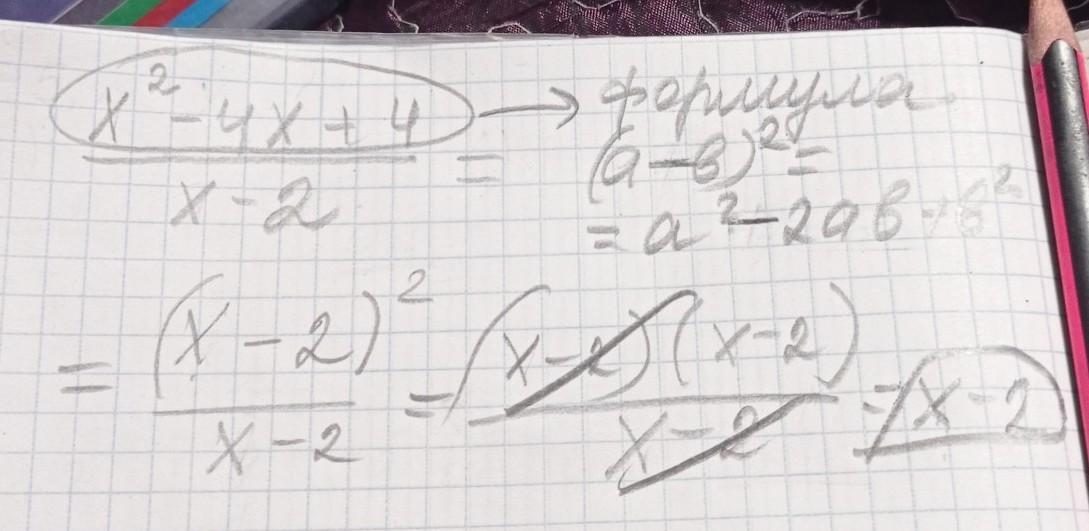 x² - 4x + 4 → формула
x - 2 = (a - b)² =
= a² - 2ab + b²
= (x - 2)² / x - 2 = (x - 2)(x - 2) / x - 2 = x - 2